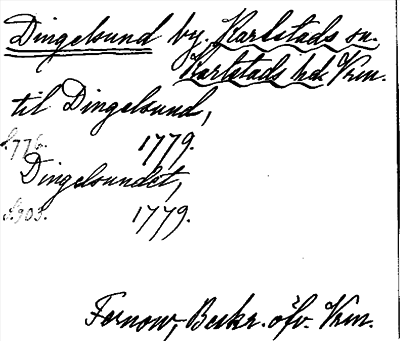 Dingelsund by. Karlstads sn.
Karlstads hd. Vrm.
til Dingelsund,
S. 776. 1779.
Dingelsundet,
S. 903. 1779.
Fernow, Beskr. öfv. Vrm.